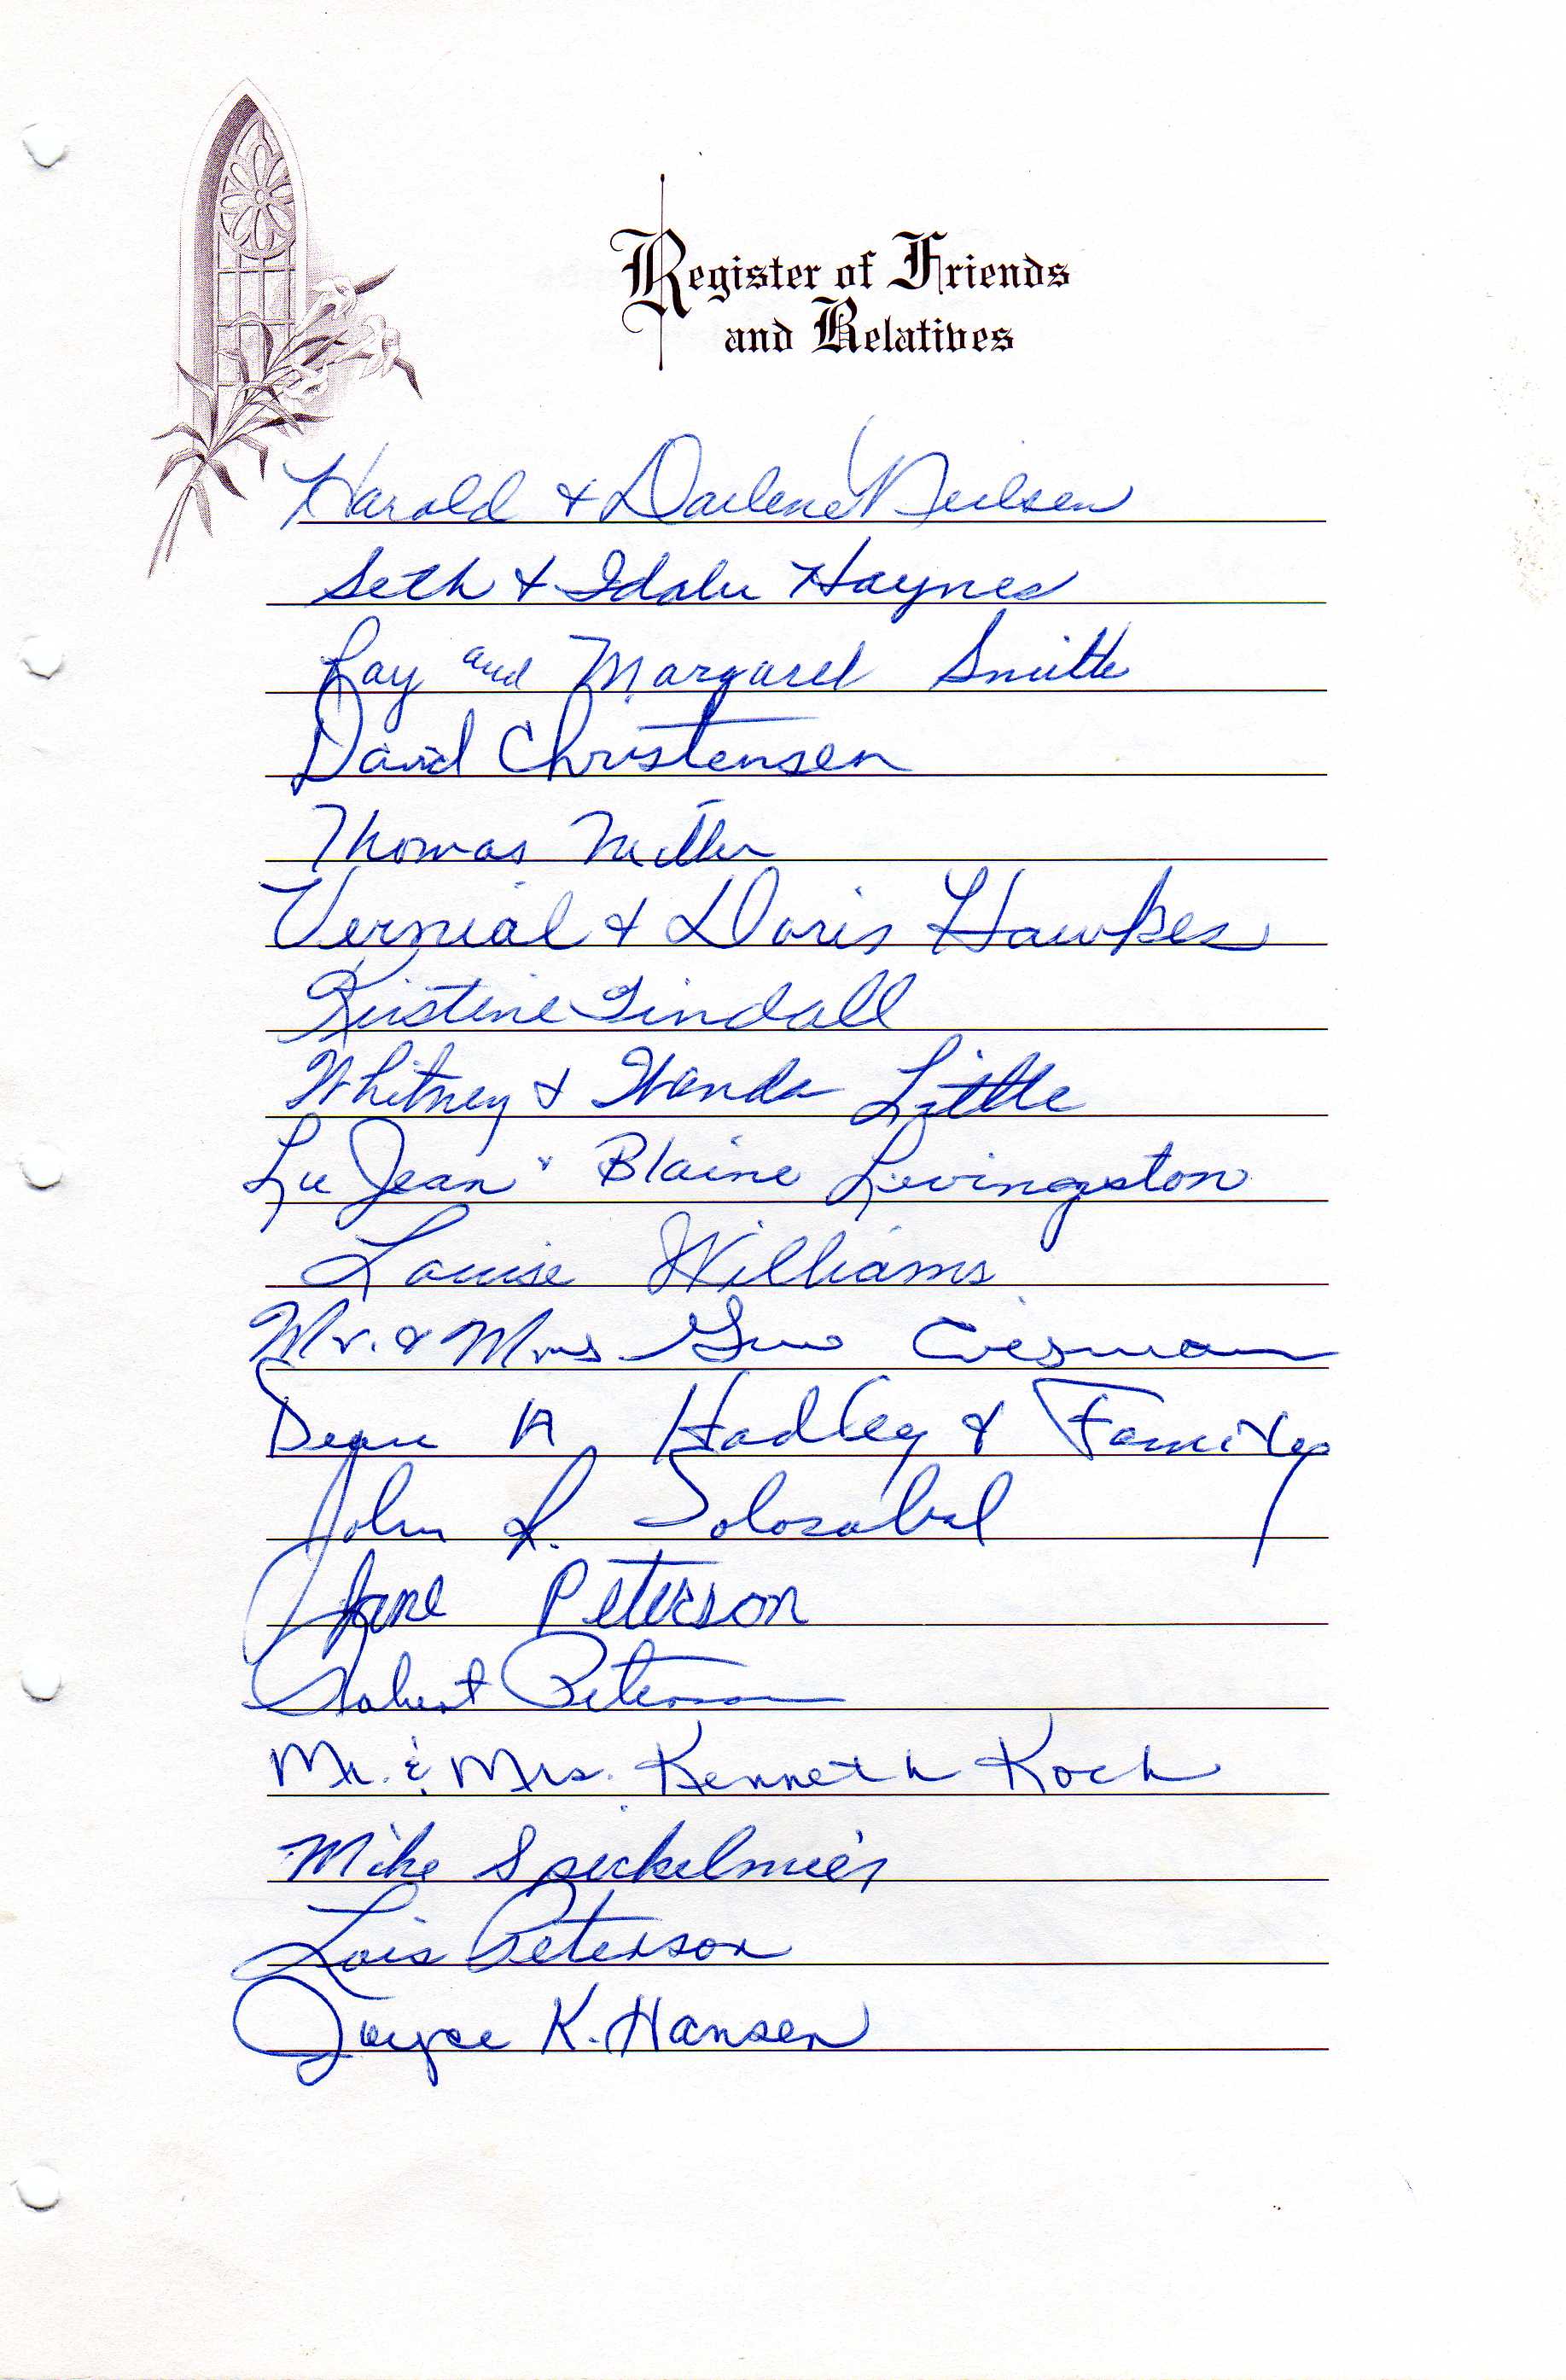 Register of Friends
and Relatives
Harold & Darlene Neilsen
Seth & Idalu Haynes
Ray and Margaret Smith
David Christensen
Thomas Miller
Vernial & Doris Hawkes
Kirstine Tindall
Whitney & Wanda Little
LuJean & Blaine Livingston
Louise Williams
Mr. & Mrs
Dean A Hadley & Family
John L. Solosabal
Jane Peterson
Robert Peterson
Mr. & Mrs. Kenneth Koch
Mike Speckelmier
Lois Peterson
Joyce K. Hansen